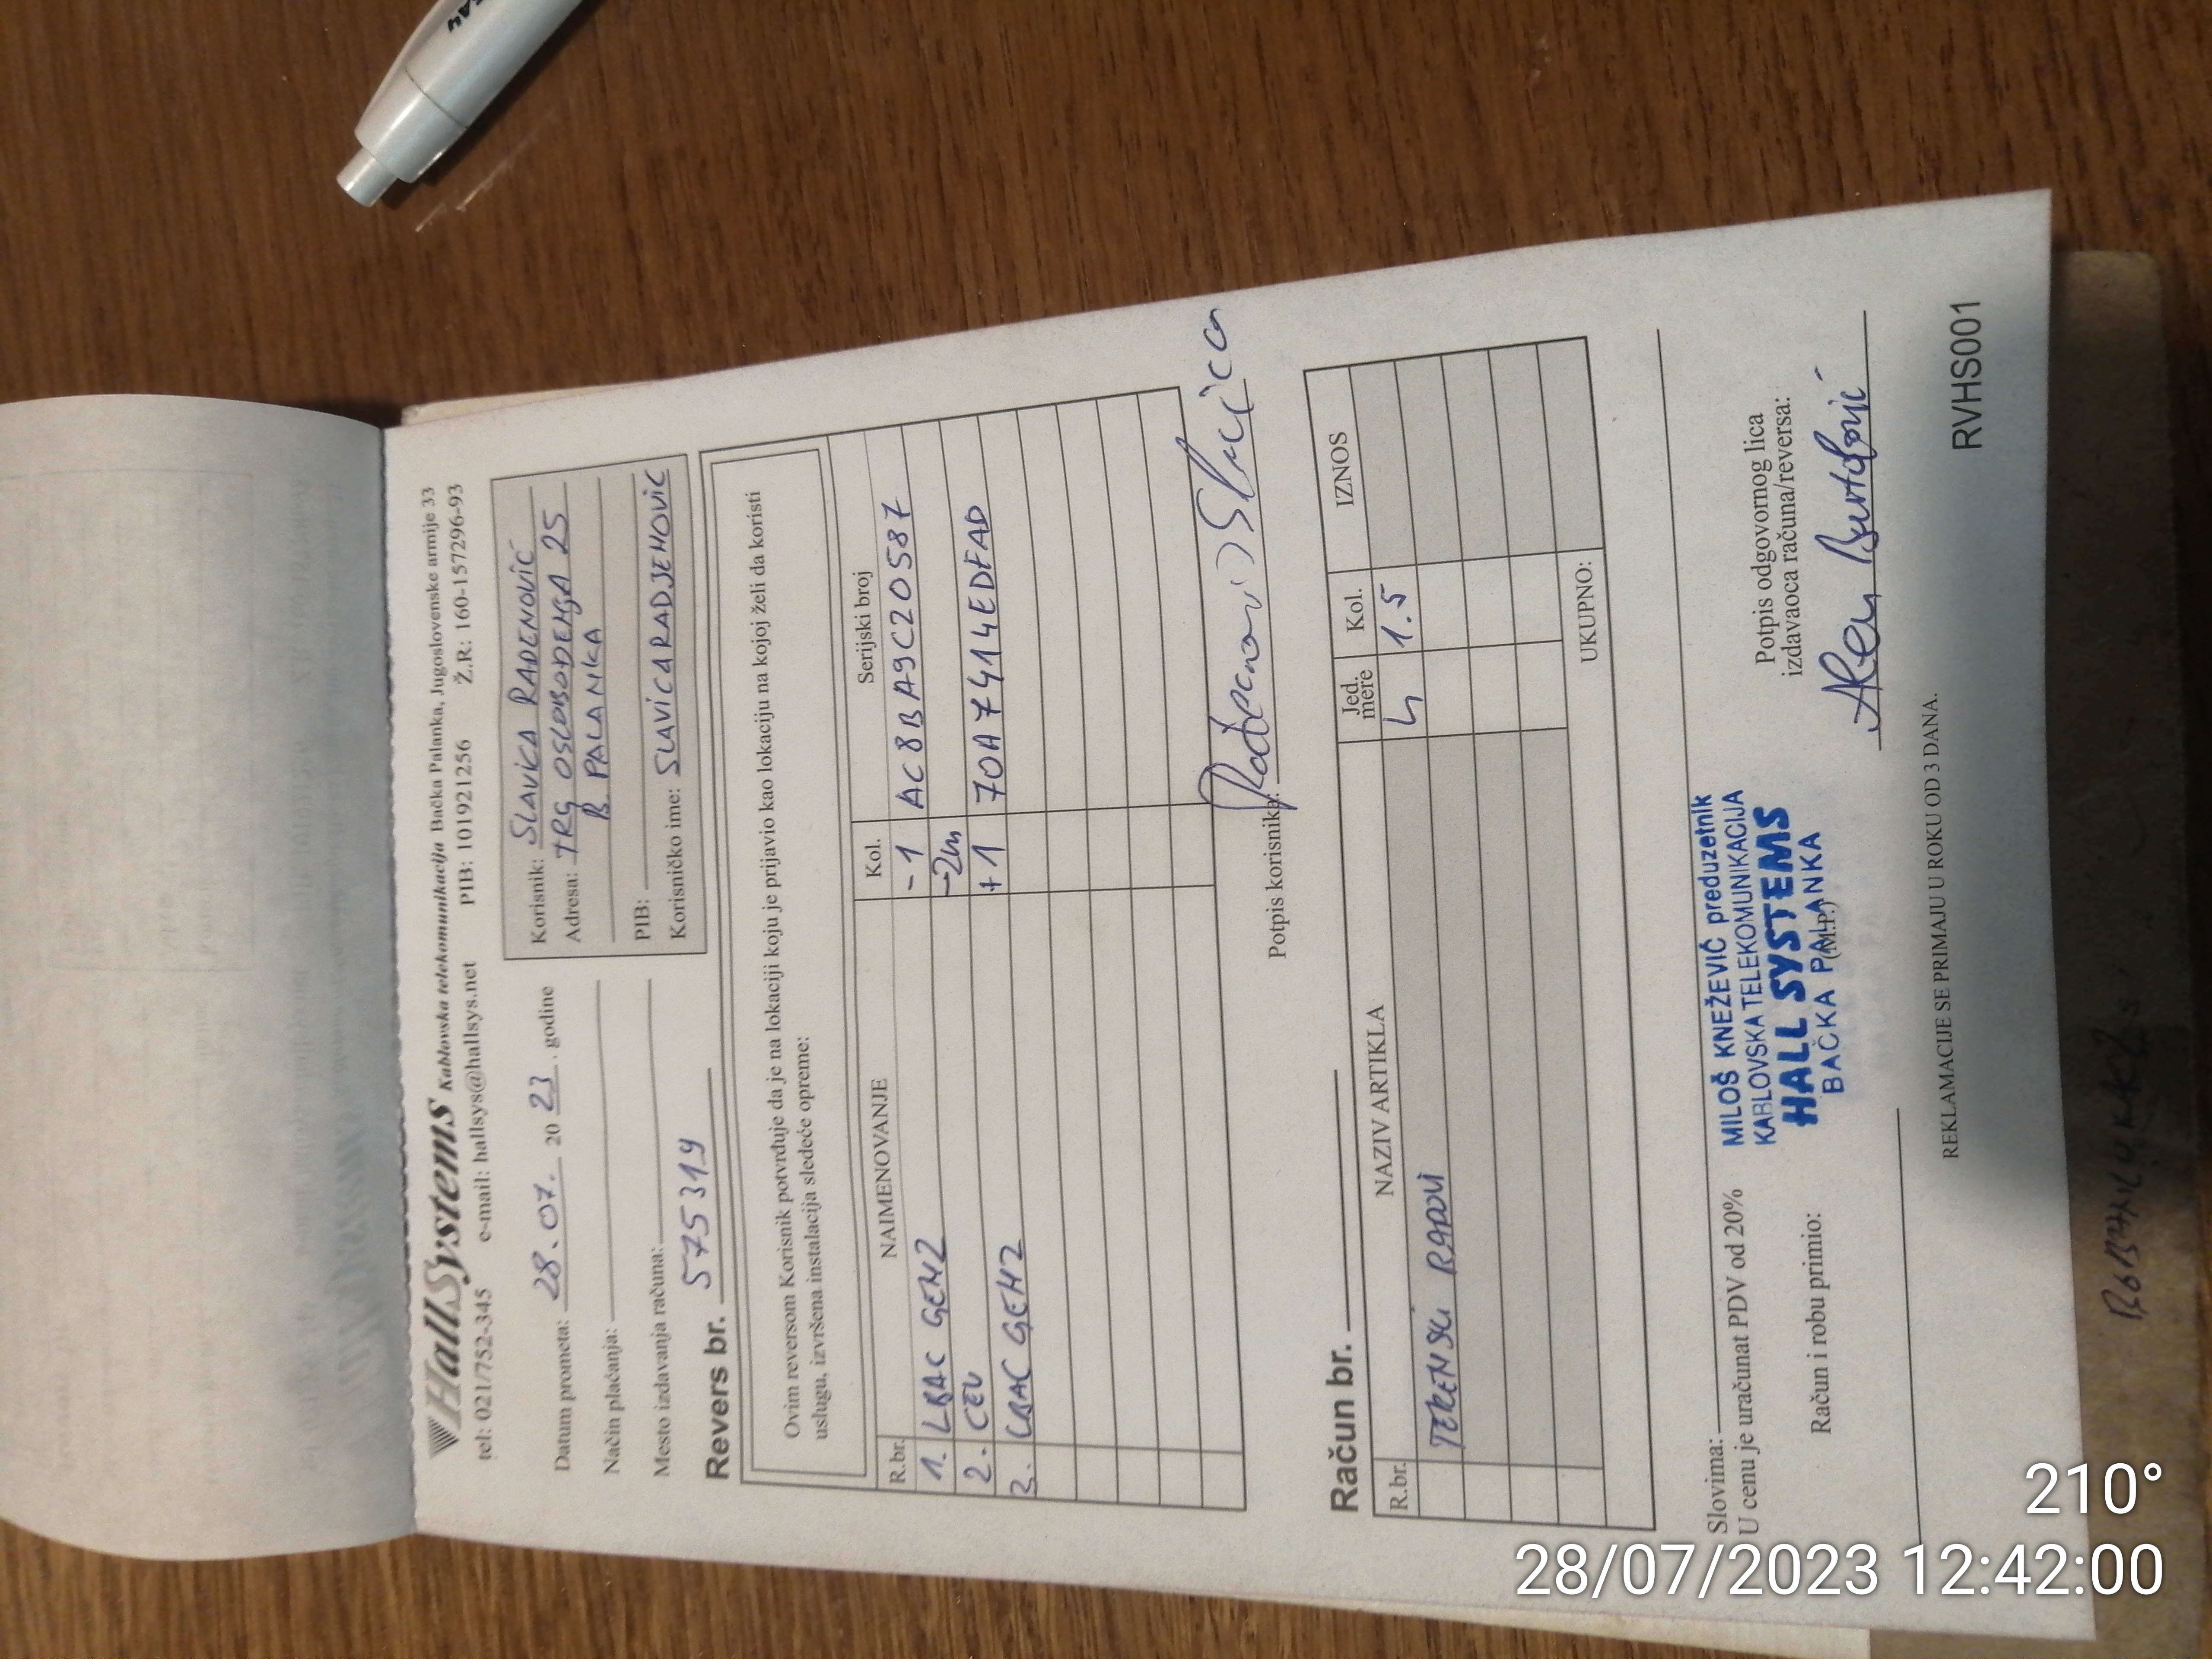 HallSystems Kablovska telekomunikacija Bačka Palanka, Jugoslovenske armije 33
tel: 021/752-345 e-mail: hallsys@hallsys.net PIB: 101921256 Ž.R: 160-157296-93
Datum prometa: 28.07. 20 23. godine
Način plaćanja:
Mesto izdavanja računa:
Korisnik: SLAVICA RAĐENOVIĆ
Adresa: TRG OSLOBOĐENJA 25
B. PALANKA
PIB:
Korisničko ime: SLAVICARADJENOVIC
Revers br. 575319
Ovim reversom Korisnik potvrđuje da je na lokaciji koju je prijavio kao lokaciju na kojoj želi da koristi
uslugu, izvršena instalacija sledeće opreme:
R.br. NAIMENOVANJE Kol. Serijski broj
1. LBAC GEN2 -1 AC8BA9C20587
2. CEV -2m
3. LBAC GEN2 +1 70A7414EDFAD
Potpis korisnika: Rađenović Slavica
Račun br.
R.br. NAZIV ARTIKLA Jed. mere Kol. IZNOS
TERENSKI RADOVI h 1.5
UKUPNO:
Slovima:
U cenu je uračunat PDV od 20%
Račun i robu primio:
MILOŠ KNEŽEVIĆ preduzetnik
KABLOVSKA TELEKOMUNIKACIJA
HALL SYSTEMS
BAČKA PALANKA
(M.P.)
Potpis odgovornog lica
izdavaoca računa/reversa:
REKLAMACIJE SE PRIMAJU U ROKU OD 3 DANA.
RVHS001
210°
28/07/2023 12:42:00